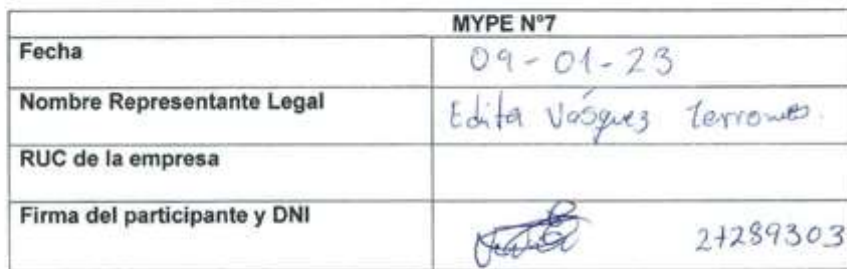 MYPE N°7
Fecha 09-01-23
Nombre Representante Legal Edita Vásquez Terrones.
RUC de la empresa
Firma del participante y DNI 27289303